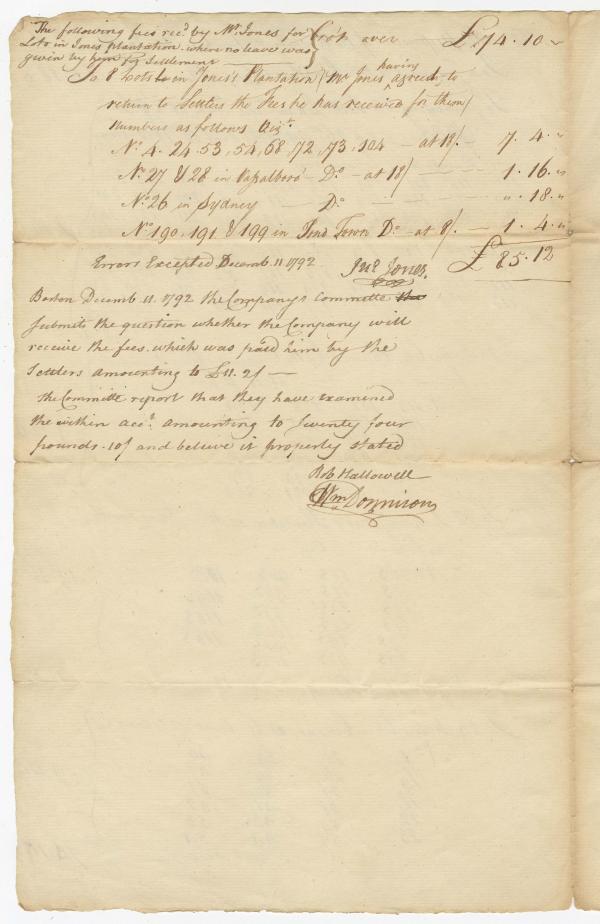 The following fees recd. by Mr. Jones for
Lots in Jones plantation where no leave was
given by him for Settlement
Brot. over — £74.10 "
To 8 Lots in Jones's Plantation (Mr Jones having agreed to
return to Settlers the Fees he has received for them)
Numbers as follows Vizt.
No. 4. 24, 53, 54, 68, 72, 73, 104 — at 18/. — 7. 4. "
No. 27 & 28 in Vassalboro' — Do. — at 18/ — 1. 16. "
No. 26 in Sydney — Do. — " . 18. "
No. 190, 191 & 199 in Town Do. — at 8/. — 1. 4. "
Errors Excepted Decemb. 11 1792 Jno. Jones. £85. 12
Boston Decemb. 11. 1792 The Companys Committe the
submits the question whether the Company will
receive the fees. which was paid him by the
Settlers amounting to £11. 2/ —
The Committe report that they have examined
the within acct. amounting to Seventy four
pounds. 10/ and believe it properly stated
Rob Hallowell
Wm Donnison